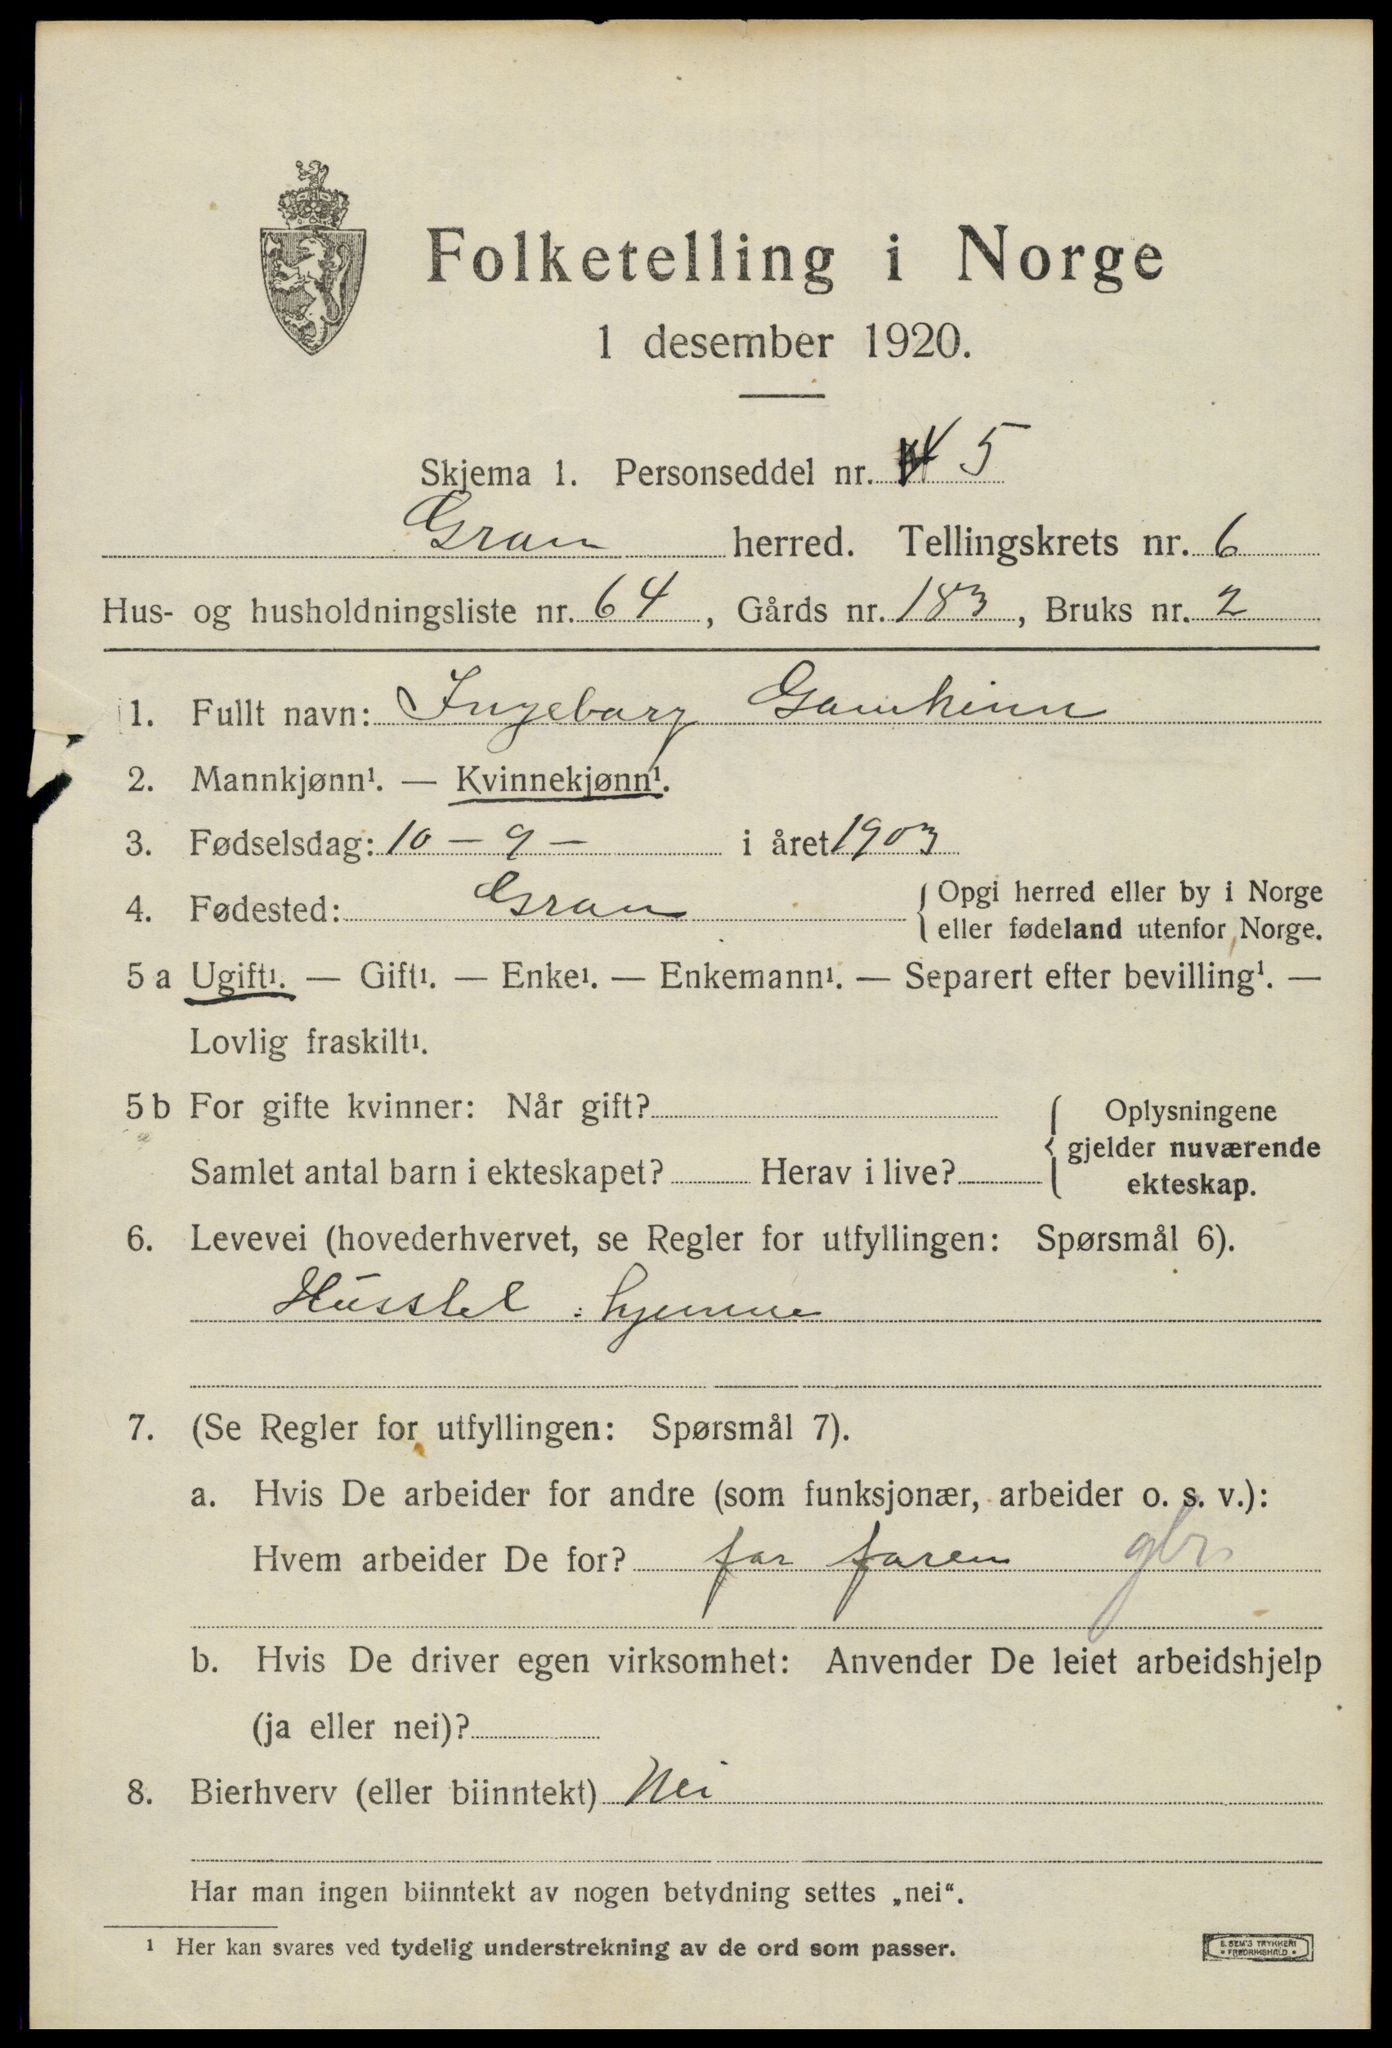 Folketelling i Norge
1 desember 1920.
Skjema 1. Personseddel nr. 5
Gran herred. Tellingskrets nr. 6
Hus- og husholdningsliste nr. 64, Gårds nr. 183, Bruks nr. 2
1. Fullt navn: Ingeborg
2. Mannkjønn¹. — Kvinnekjønn¹.
3. Fødselsdag: 10 - 9 - i året 1903
4. Fødested: Gran
{ Opgi herred eller by i Norge
eller fødeland utenfor Norge.
5 a Ugift¹. — Gift¹. — Enke¹. — Enkemann¹. — Separert efter bevilling¹. —
Lovlig fraskilt¹.
5 b For gifte kvinner: Når gift?
Samlet antal barn i ekteskapet? Herav i live?
{ Oplysningene
gjelder nuværende
ekteskap.
6. Levevei (hovederhvervet, se Regler for utfyllingen: Spørsmål 6).
Husstel i hjemme
7. (Se Regler for utfyllingen: Spørsmål 7).
a. Hvis De arbeider for andre (som funksjonær, arbeider o. s. v.):
Hvem arbeider De for? for faren gbr
b. Hvis De driver egen virksomhet: Anvender De leiet arbeidshjelp
(ja eller nei)?
8. Bierhverv (eller biinntekt) Nei
Har man ingen biinntekt av nogen betydning settes „nei“.
¹ Her kan svares ved tydelig understrekning av de ord som passer.
E. SEM'S TRYKKERI
• FREDRIKSHALD •